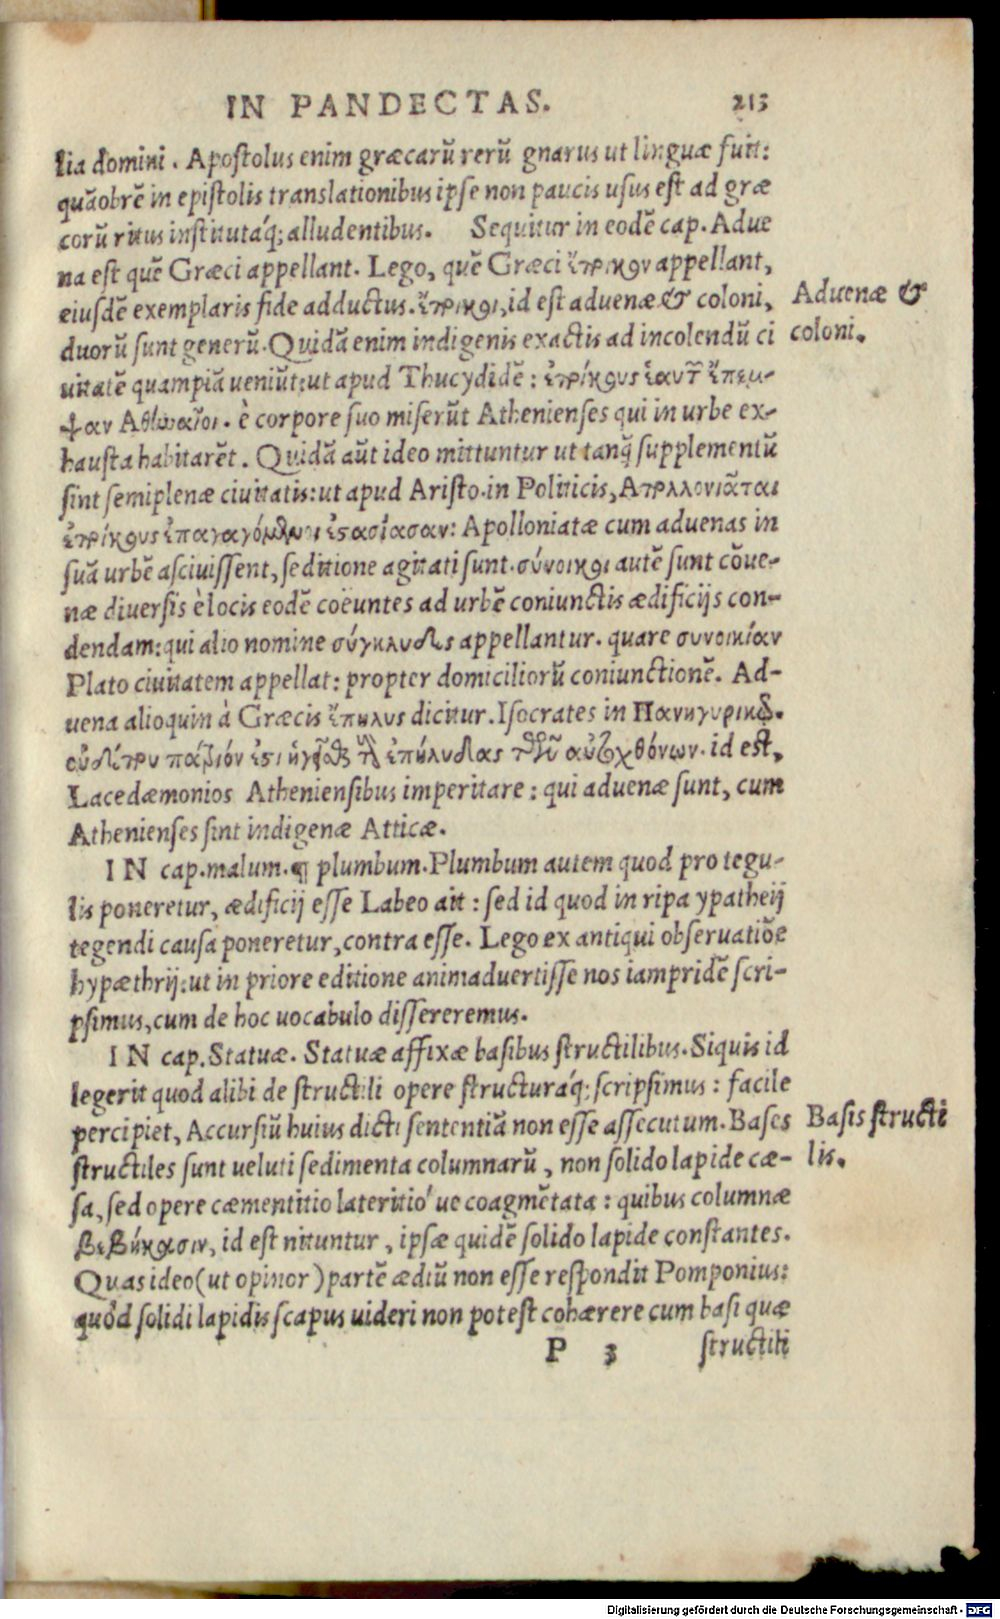 IN PANDECTAS. 213
lia domini. Apostolus enim græcarū rerū gnarus ut linguæ fuit:
quāobrē in epistolis translationibus ipse non paucis usus est ad græ
corū ritus institutáq; alludentibus. Sequitur in eodē cap. Adue
na est quē Græci appellant. Lego, quē Græci ἔποικον appellant,
eiusdē exemplaris fide adductus. ἔποικοι, id est aduenæ & coloni,
Aduenæ &
duorū sunt generū. Quidā enim indigenis exactis ad incolendū ci
coloni.
uitatē quampiā ueniūt: ut apud Thucydidē: ἐποίκους ἑαυτῶν ἔπεμ-
ψαν Ἀθηναῖοι. è corpore suo miserūt Athenienses qui in urbe ex-
hausta habitarēt. Quidā aūt ideo mittuntur ut tanq̄ supplementū
sint semiplenæ ciuitatis: ut apud Aristo. in Politicis, Ἀπολλονιᾶται
ἐποίκους ἐπαγαγόμενοι ἐστασίασαν: Apolloniatæ cum aduenas in
suā urbē asciuissent, seditione agitati sunt. σύνοικοι autē sunt cōue-
næ diuersis è locis eodē coëuntes ad urbē coniunctis ædificijs con-
dendam: qui alio nomine σύγκλυδες appellantur. quare συνοικίαν
Plato ciuitatem appellat: propter domiciliorū coniunctionē. Ad-
uena alioquin à Græcis ἔπηλυς dicitur. Isocrates in Πανηγυρικῷ.
ἐπήλυδας τῶν αὐτοχθόνων. id est,
Lacedæmonios Atheniensibus imperitare: qui aduenæ sunt, cum
Athenienses sint indigenæ Atticæ.
IN cap. malum. ¶ plumbum. Plumbum autem quod pro tegu-
lis poneretur, ædificij esse Labeo ait: sed id quod in ripa ypatheij
tegendi causa poneretur, contra esse. Lego ex antiqui obseruatiōe
hypæthrij: ut in priore editione animaduertisse nos iampridē scri-
psimus, cum de hoc uocabulo dissereremus.
IN cap. Statuæ. Statuæ affixæ basibus structilibus. Siquis id
legerit quod alibi de structili opere structuráq; scripsimus: facile
percipiet, Accursiū huius dicti sententiā non esse assecutum. Bases
Basis structi
structiles sunt ueluti sedimenta columnarū, non solido lapide cæ-
lis.
sa, sed opere cæmentitio lateritio´ue coagmētata: quibus columnæ
βεβήκασιν, id est nituntur, ipsæ quidē solido lapide constantes.
Quas ideo (ut opinor) partē ædiū non esse respondit Pomponius:
quòd solidi lapidis scapus uideri non potest cohærere cum basi quæ
P 3 structili
Digitalisierung gefördert durch die Deutsche Forschungsgemeinschaft - DFG